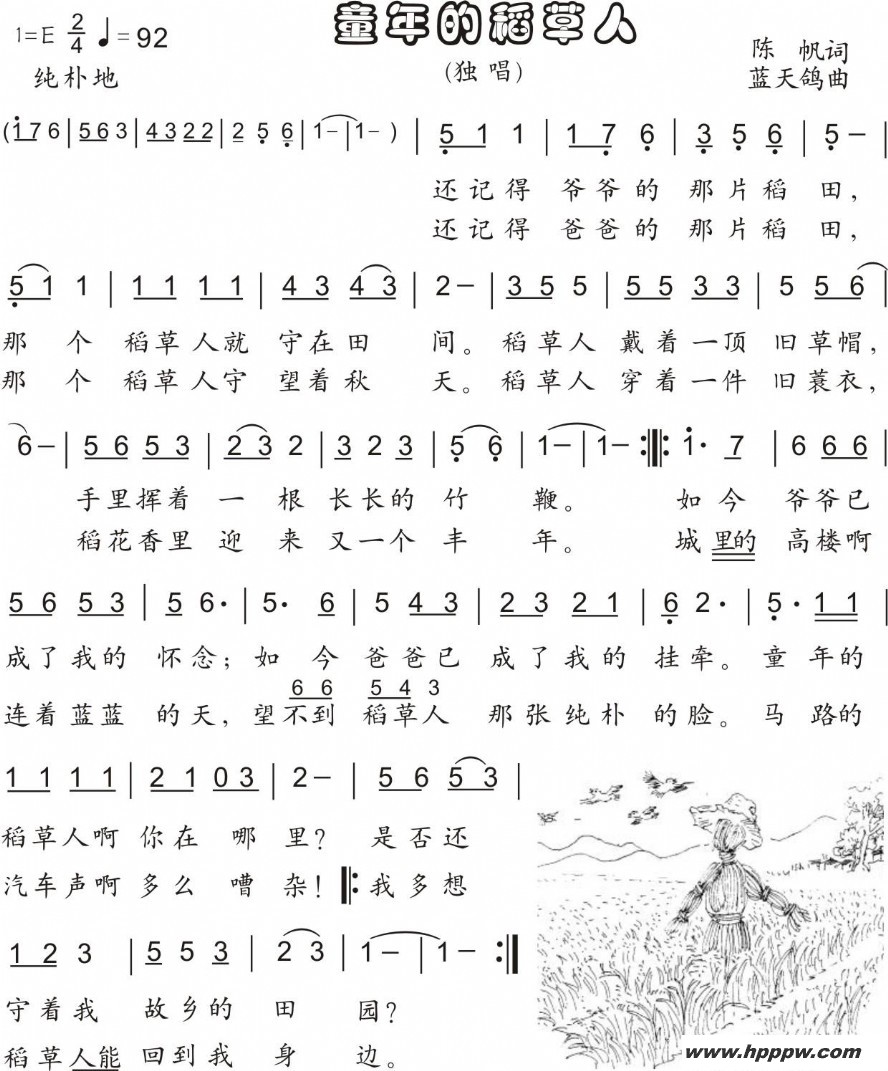 童年的稻草人
1=E 2/4 ♩=92
纯朴地
(独唱)
陈 帆词
蓝天鸽曲
(1 7 6 | 5 6 3 | 4 3 2 2 | 2 5 6 | 1 – | 1 – ) | 5 1 1 | 1 7 6 | 3 5 6 | 5 – |
还记得 爷爷的 那片稻 田，
还记得 爸爸的 那片稻 田，
5 1 1 | 1 1 1 1 | 4 3 4 3 | 2 – | 3 5 5 | 5 5 3 3 | 5 5 6 |
那 个 稻草人就 守在田 间。稻草人 戴着一顶 旧草帽，
那 个 稻草人守 望着秋 天。稻草人 穿着一件 旧蓑衣，
6 – | 5 6 5 3 | 2 3 2 | 3 2 3 | 5 6 | 1 – | 1 – :‖: 1· 7 | 6 6 6 |
手里挥着 一 根 长长的 竹 鞭。 如今 爷爷已
稻花香里 迎 来 又一个 丰 年。 城里的 高楼啊
5 6 5 3 | 5 6· | 5· 6 | 5 4 3 | 2 3 2 1 | 6 2· | 5· 1 1 |
成了我的 怀念；如 今 爸爸已 成了我的 挂牵。童 年的
6 6 5 4 3
连着蓝蓝 的天，望不到 稻草人 那张纯朴 的脸。马 路的
1 1 1 1 | 2 1 0 3 | 2 – | 5 6 5 3 |
稻草人啊 你在 哪 里？ 是否还
汽车声啊 多么 嘈 杂！‖: 我多想
1 2 3 | 5 5 3 | 2 3 | 1 – | 1 – :‖
守着我 故乡的 田 园？
稻草人能 回到我 身 边。
www.hpppw.com